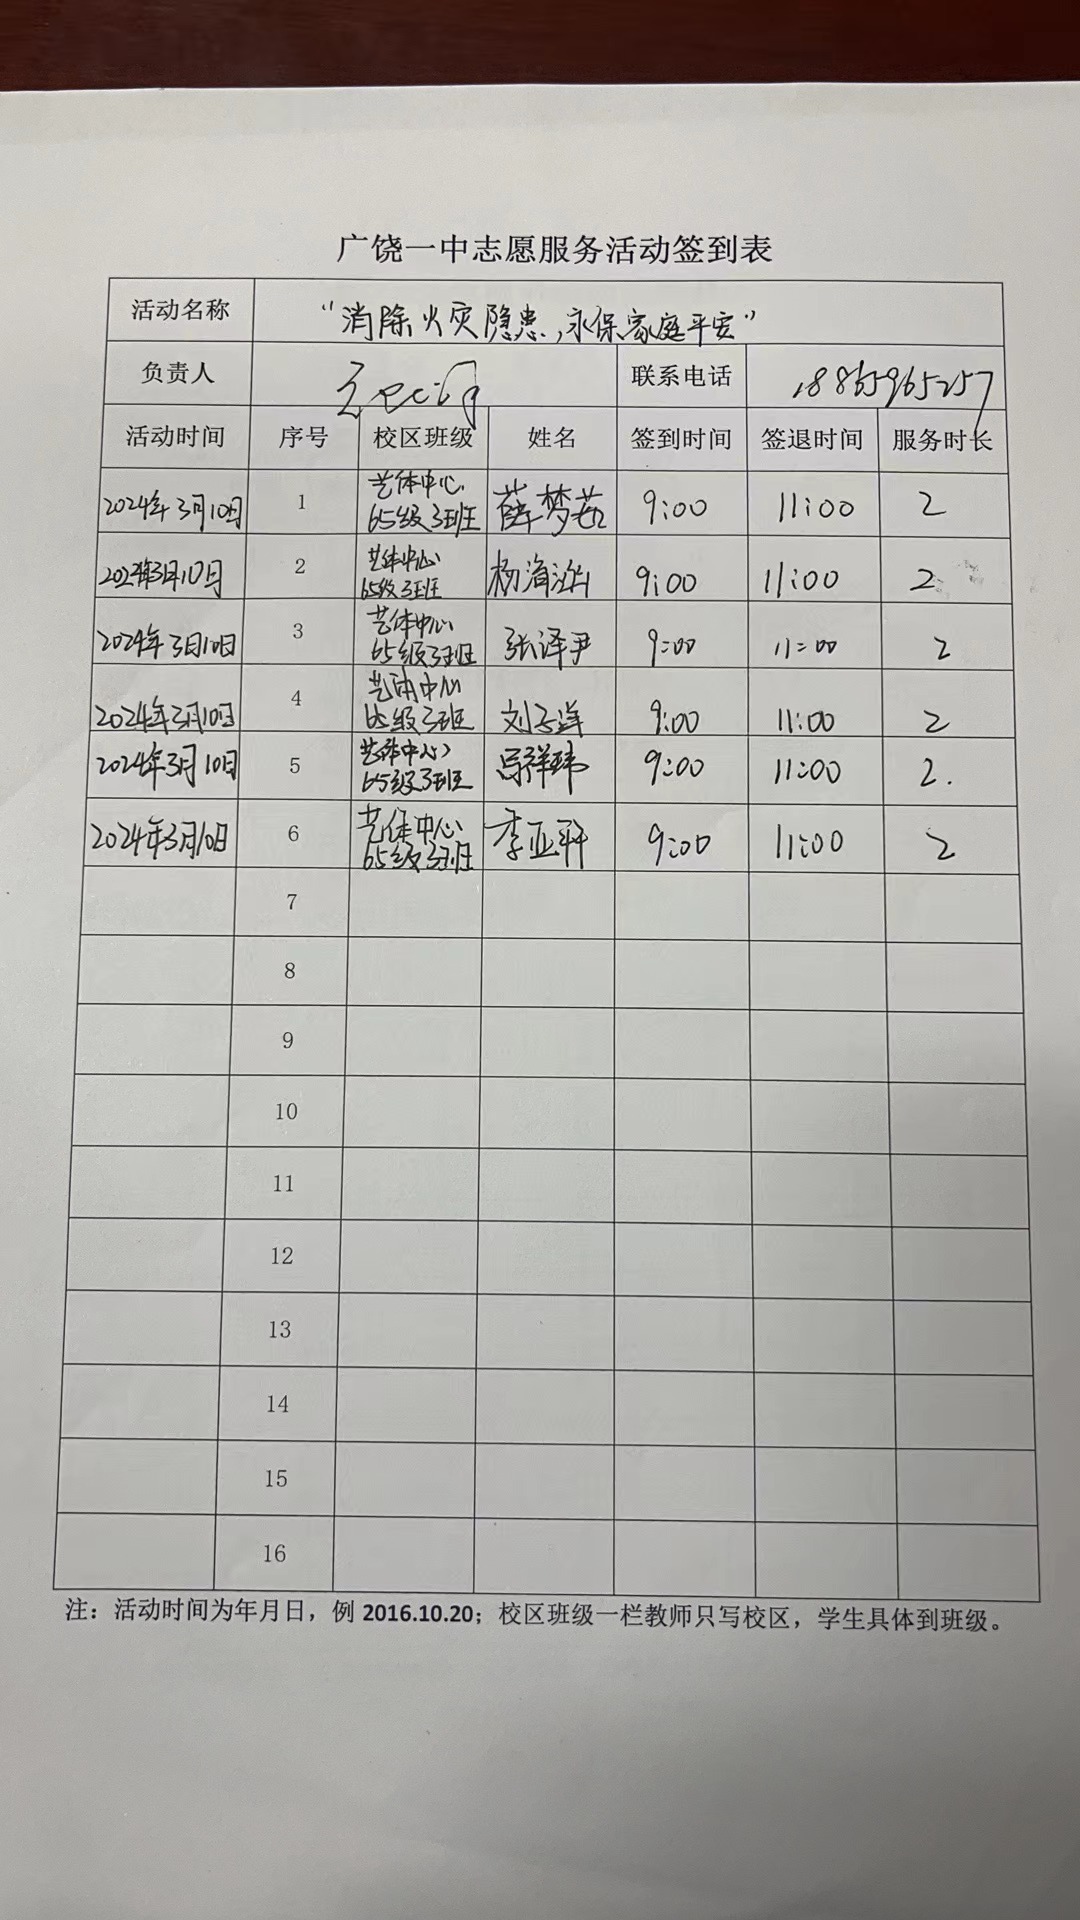 广饶一中志愿服务活动签到表
活动名称 “消除火灾隐患，永保家庭平安”
负责人 联系电话 18865965257
活动时间 序号 校区班级 姓名 签到时间 签退时间 服务时长
2024年3月10日 1 艺体中心 65级3班 薛梦茹 9:00 11:00 2
2024年3月10日 2 艺体中心 65级3班 9:00 11:00 2
2024年3月10日 3 艺体中心 65级3班 张泽尹 9:00 11:00 2
2024年3月10日 4 艺体中心 65级3班 刘子洋 9:00 11:00 2
2024年3月10日 5 艺体中心 65级3班 9:00 11:00 2.
2024年3月10日 6 艺体中心 65级3班 李亚轩 9:00 11:00 2
7
8
9
10
11
12
13
14
15
16
注：活动时间为年月日，例 2016.10.20；校区班级一栏教师只写校区，学生具体到班级。